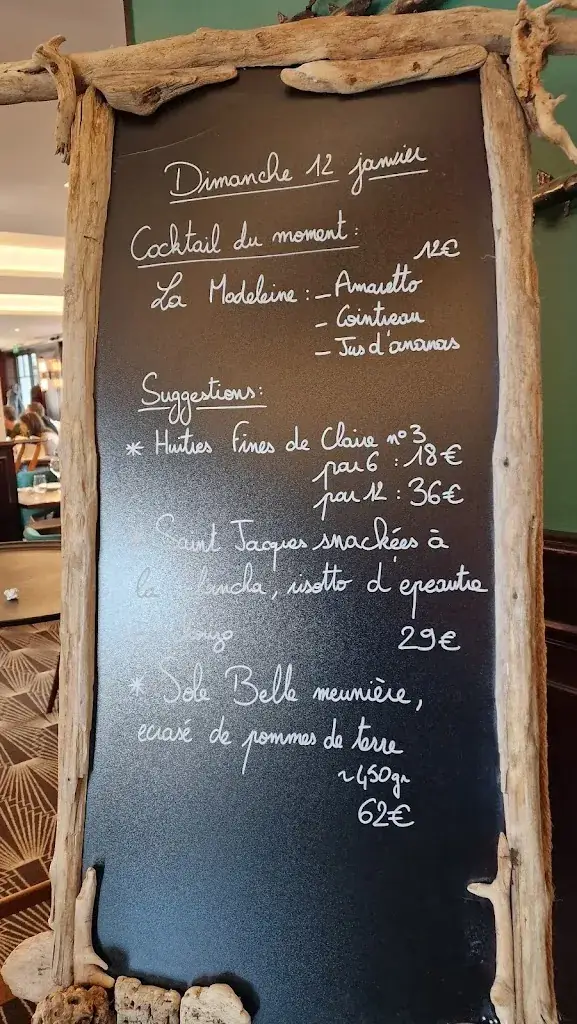 Dimanche 12 janvier
Cocktail du moment :
12€
La Madeleine : - Amaretto
- Cointreau
- Jus d'ananas
Suggestions :
* Huitres Fines de Claire n°3
par 6 : 18€
par 12 : 36€
Saint Jacques snackées à
la plancha, risotto d'epeautre
29€
* Sole Belle meunière,
ecrasé de pommes de terre
~450gr
62€